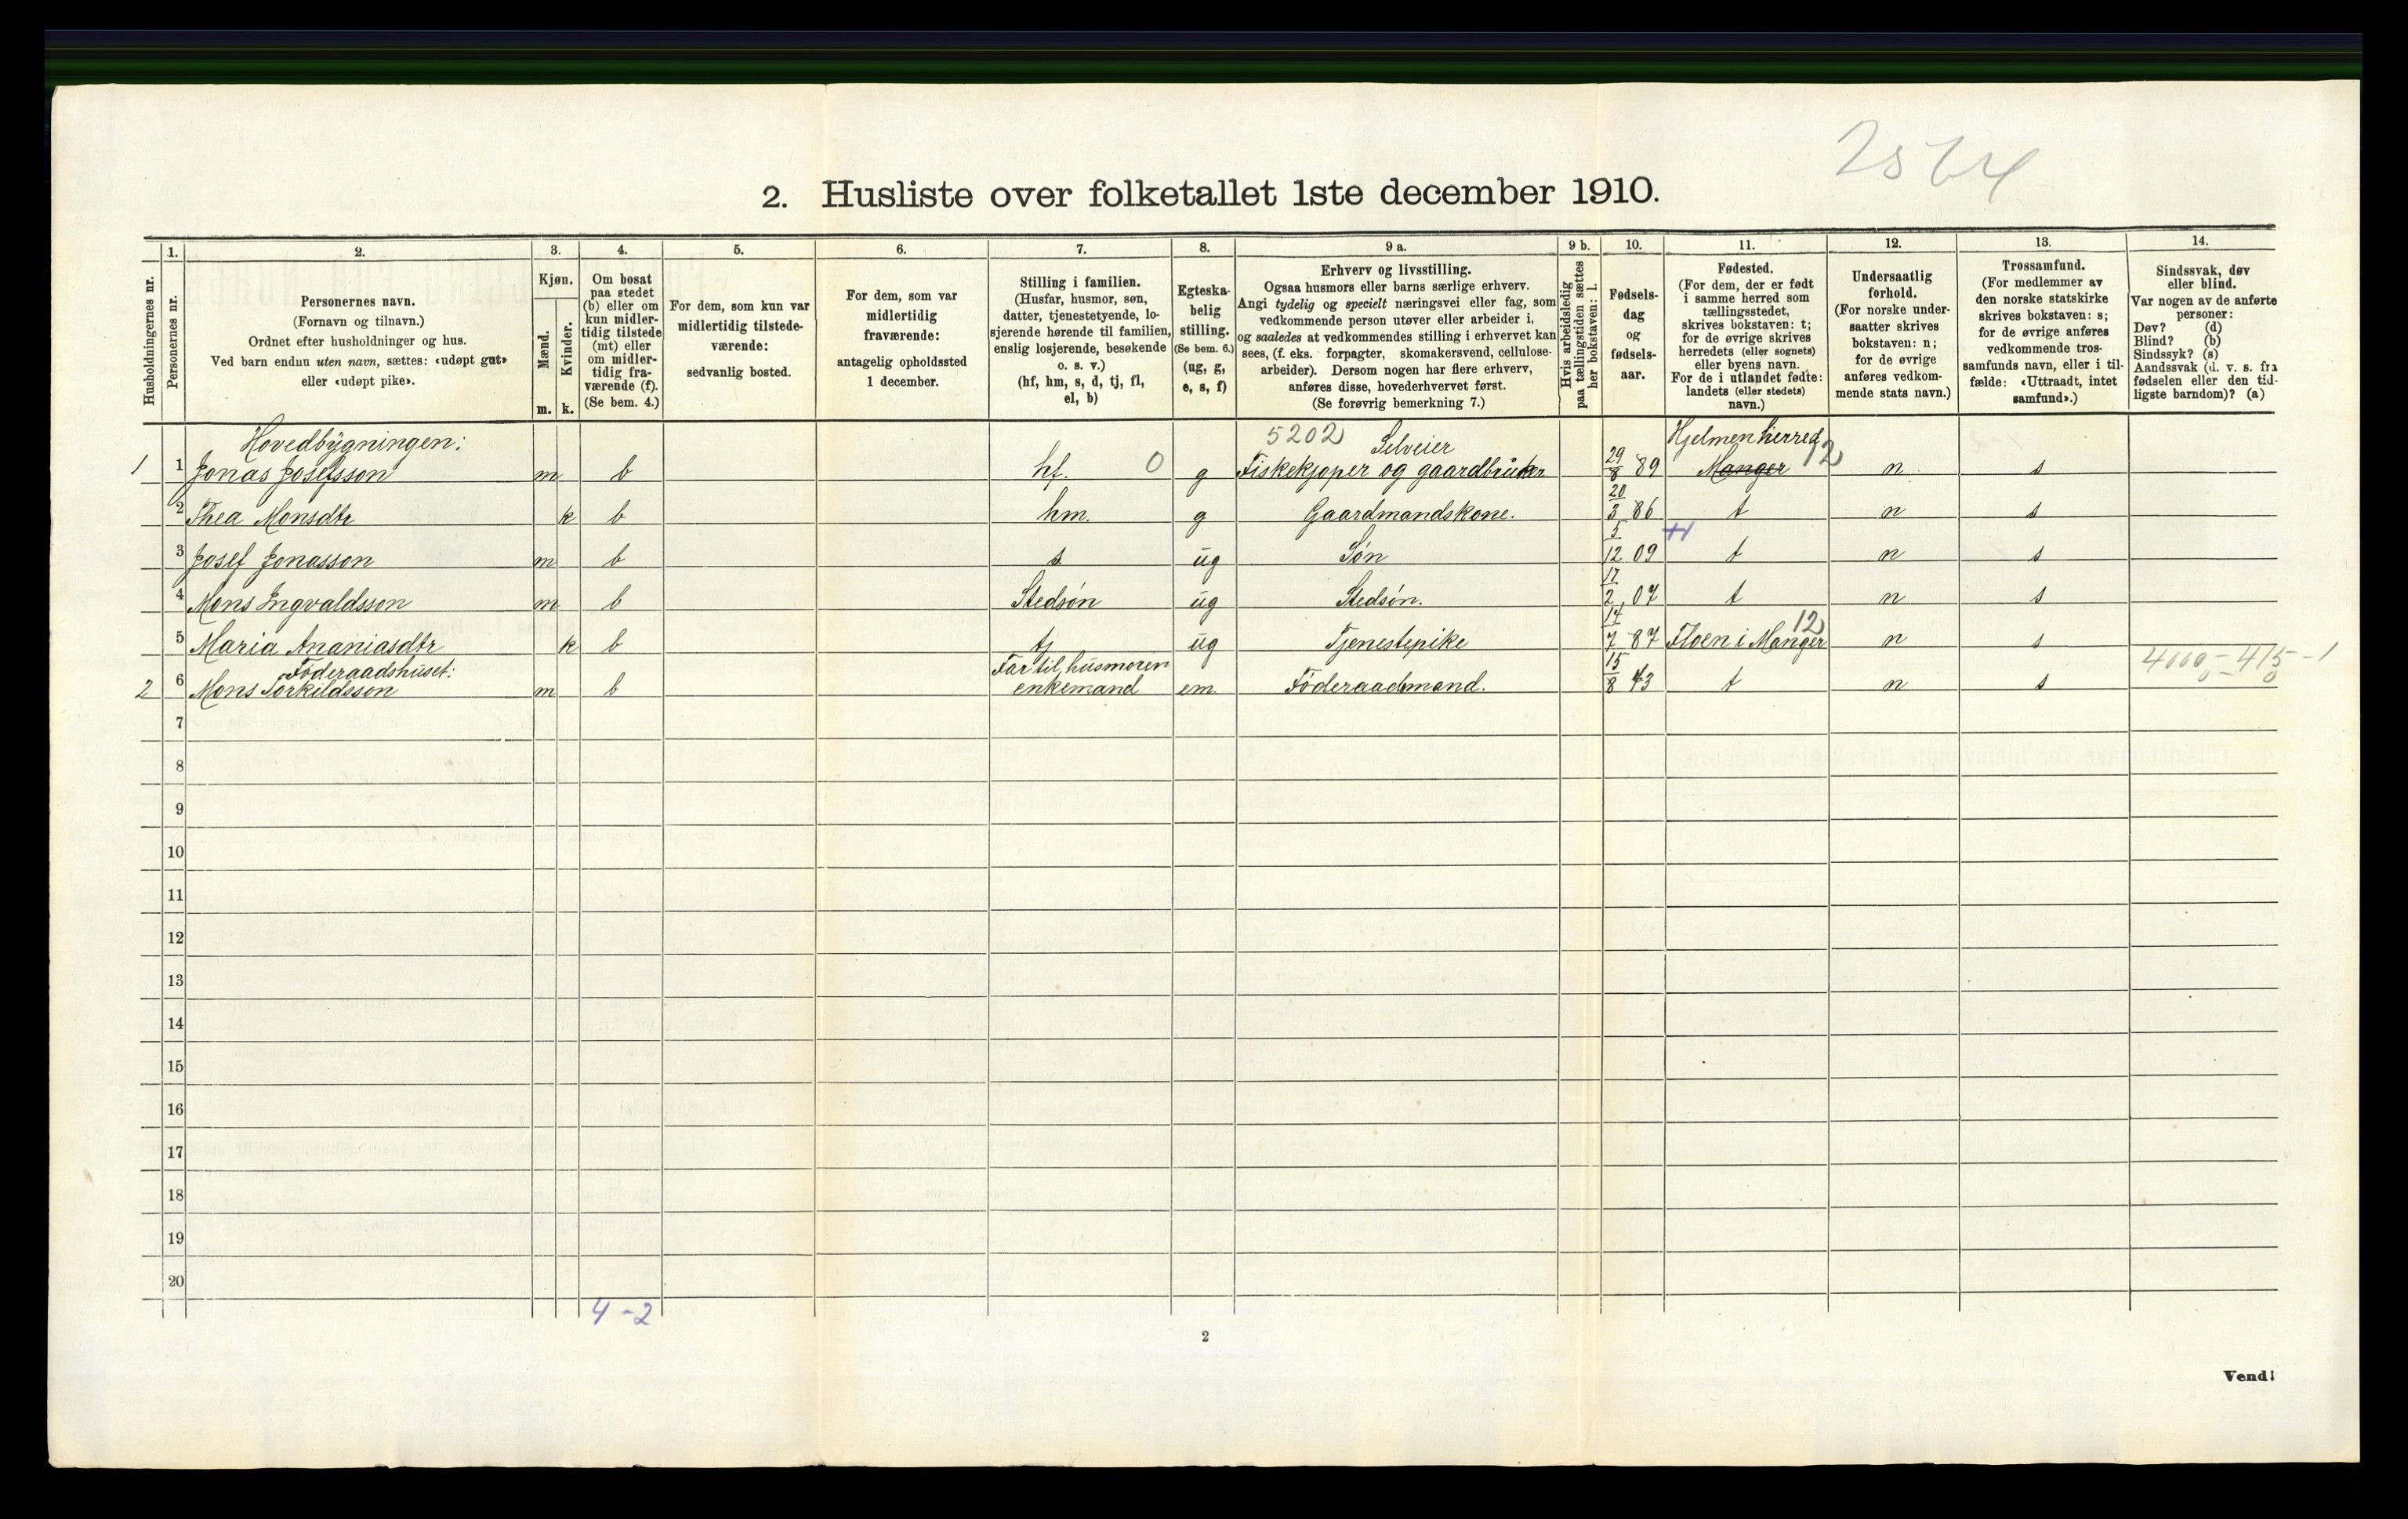 2. Husliste over folketallet 1ste december 1910.
Husholdningernes nr.
1.
Personernes nr.
2.
Personernes navn.
(Fornavn og tilnavn.)
Ordnet efter husholdninger og hus.
Ved barn endnu uten navn, sættes: «udøpt gut»
eller «udøpt pike».
3.
Kjøn.
Mænd.
Kvinder.
m. k.
4.
Om bosat
paa stedet
(b) eller om
kun midler-
tidig tilstede
(mt) eller
om midler-
tidig fra-
værende (f).
(Se bem. 4.)
5.
For dem, som kun var
midlertidig tilstede-
værende:
sedvanlig bosted.
6.
For dem, som var
midlertidig
fraværende:
antagelig opholdssted
1 december.
7.
Stilling i familien.
(Husfar, husmor, søn,
datter, tjenestetyende, lo-
sjerende hørende til familien,
enslig losjerende, besøkende
o. s. v.)
(hf, hm, s, d, tj, fl,
el, b)
8.
Egteska-
belig
stilling.
(Se bem. 6.)
(ug, g,
e, s, f)
9 a.
Erhverv og livsstilling.
Ogsaa husmors eller barns særlige erhverv.
Angi tydelig og specielt næringsvei eller fag, som
vedkommende person utøver eller arbeider i,
og saaledes at vedkommendes stilling i erhvervet kan
sees, (f. eks. forpagter, skomakersvend, cellulose-
arbeider). Dersom nogen har flere erhverv,
anføres disse, hovederhvervet først.
(Se forøvrig bemerkning 7.)
9 b.
Hvis arbeidsledig
paa tællingstiden sættes
her bokstaven: l.
10.
Fødsels-
dag
og
fødsels-
aar.
11.
Fødested.
(For dem, der er født
i samme herred som
tællingsstedet,
skrives bokstaven: t;
for de øvrige skrives
herredets (eller sognets)
eller byens navn.
For de i utlandet fødte:
landets (eller stedets)
navn.)
12.
Undersaatlig
forhold.
(For norske under-
saatter skrives
bokstaven: n;
for de øvrige
anføres vedkom-
mende stats navn.)
13.
Trossamfund.
(For medlemmer av
den norske statskirke
skrives bokstaven: s;
for de øvrige anføres
vedkommende tros-
samfunds navn, eller i til-
fælde: «Uttraadt, intet
samfund».)
14.
Sindssvak, døv
eller blind.
Var nogen av de anførte
personer:
Døv? (d)
Blind? (b)
Sindssyk? (s)
Aandssvak (d. v. s. fra
fødselen eller den tid-
ligste barndom)? (a)
Hovedbygningen: 5202 Selveier Hjelmen herred
1 1 Jonas Josefsson m b hf. 0 g Fiskekjøper og gaardbruker 29/8 89 Manger 12 n s
2 Thea Monsdtr k b hm. g Gaardmandskone. 20/3 86 t n s
3 Josef Jonasson m b s ug Søn 5/12 09 t n s
4 Mons Ingvaldsson m b Stedsøn ug Stedsøn. 17/2 07 t n s
5 Maria Ananiasdtr k b tj ug Tjenestepike 14/7 87 Floen i Manger 12 n s
Føderaadshuset: Far til husmoren
2 6 Mons Torkildsson m b enkemand em. Føderaadmand. 15/8 43 t n s
7
8
9
10
11
12
13
14
15
16
17
18
19
20
4-2
2
Vend!